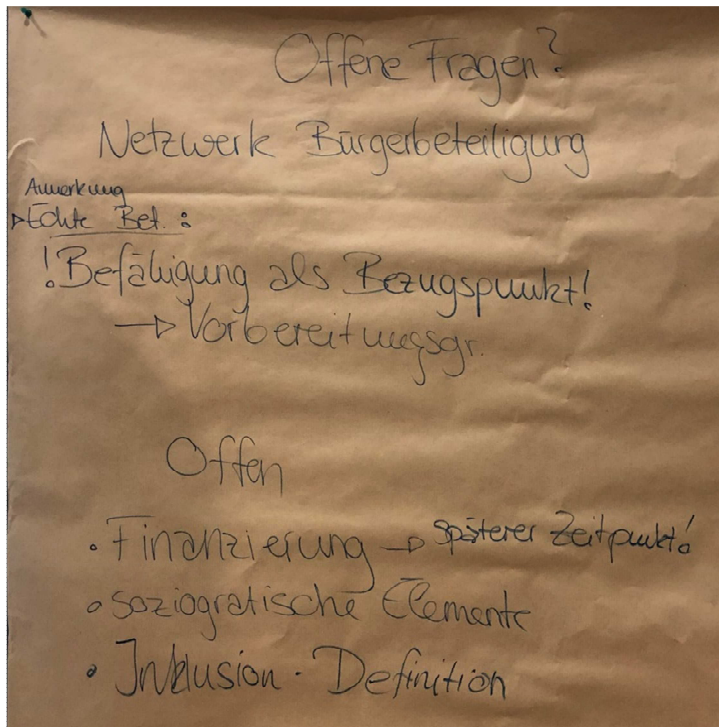 Offene Fragen?
Netzwerk Bürgerbeteiligung
Anmerkung
▷Echte Bet.:
!Befähigung als Bezugspunkt!
→ Vorbereitungsgr.
Offen
• Finanzierung → späterer Zeitpunkt!
• soziogratische Elemente
• Inklusion - Definition